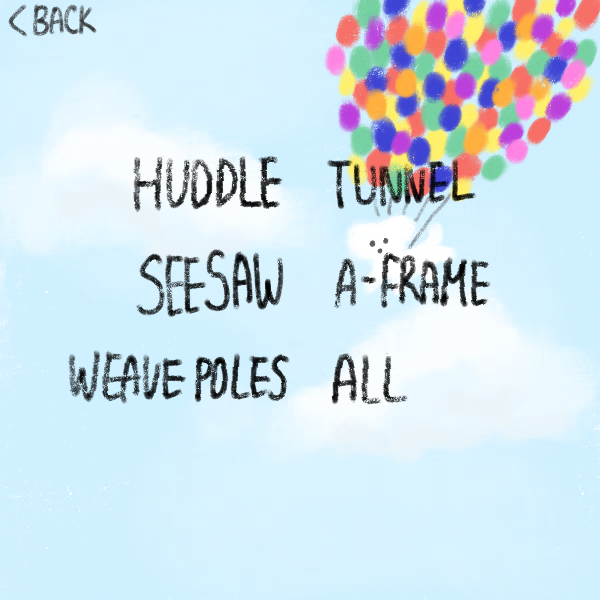 < BACK
HUDDLE TUNNEL
SEESAW A-FRAME
WEAVE POLES ALL